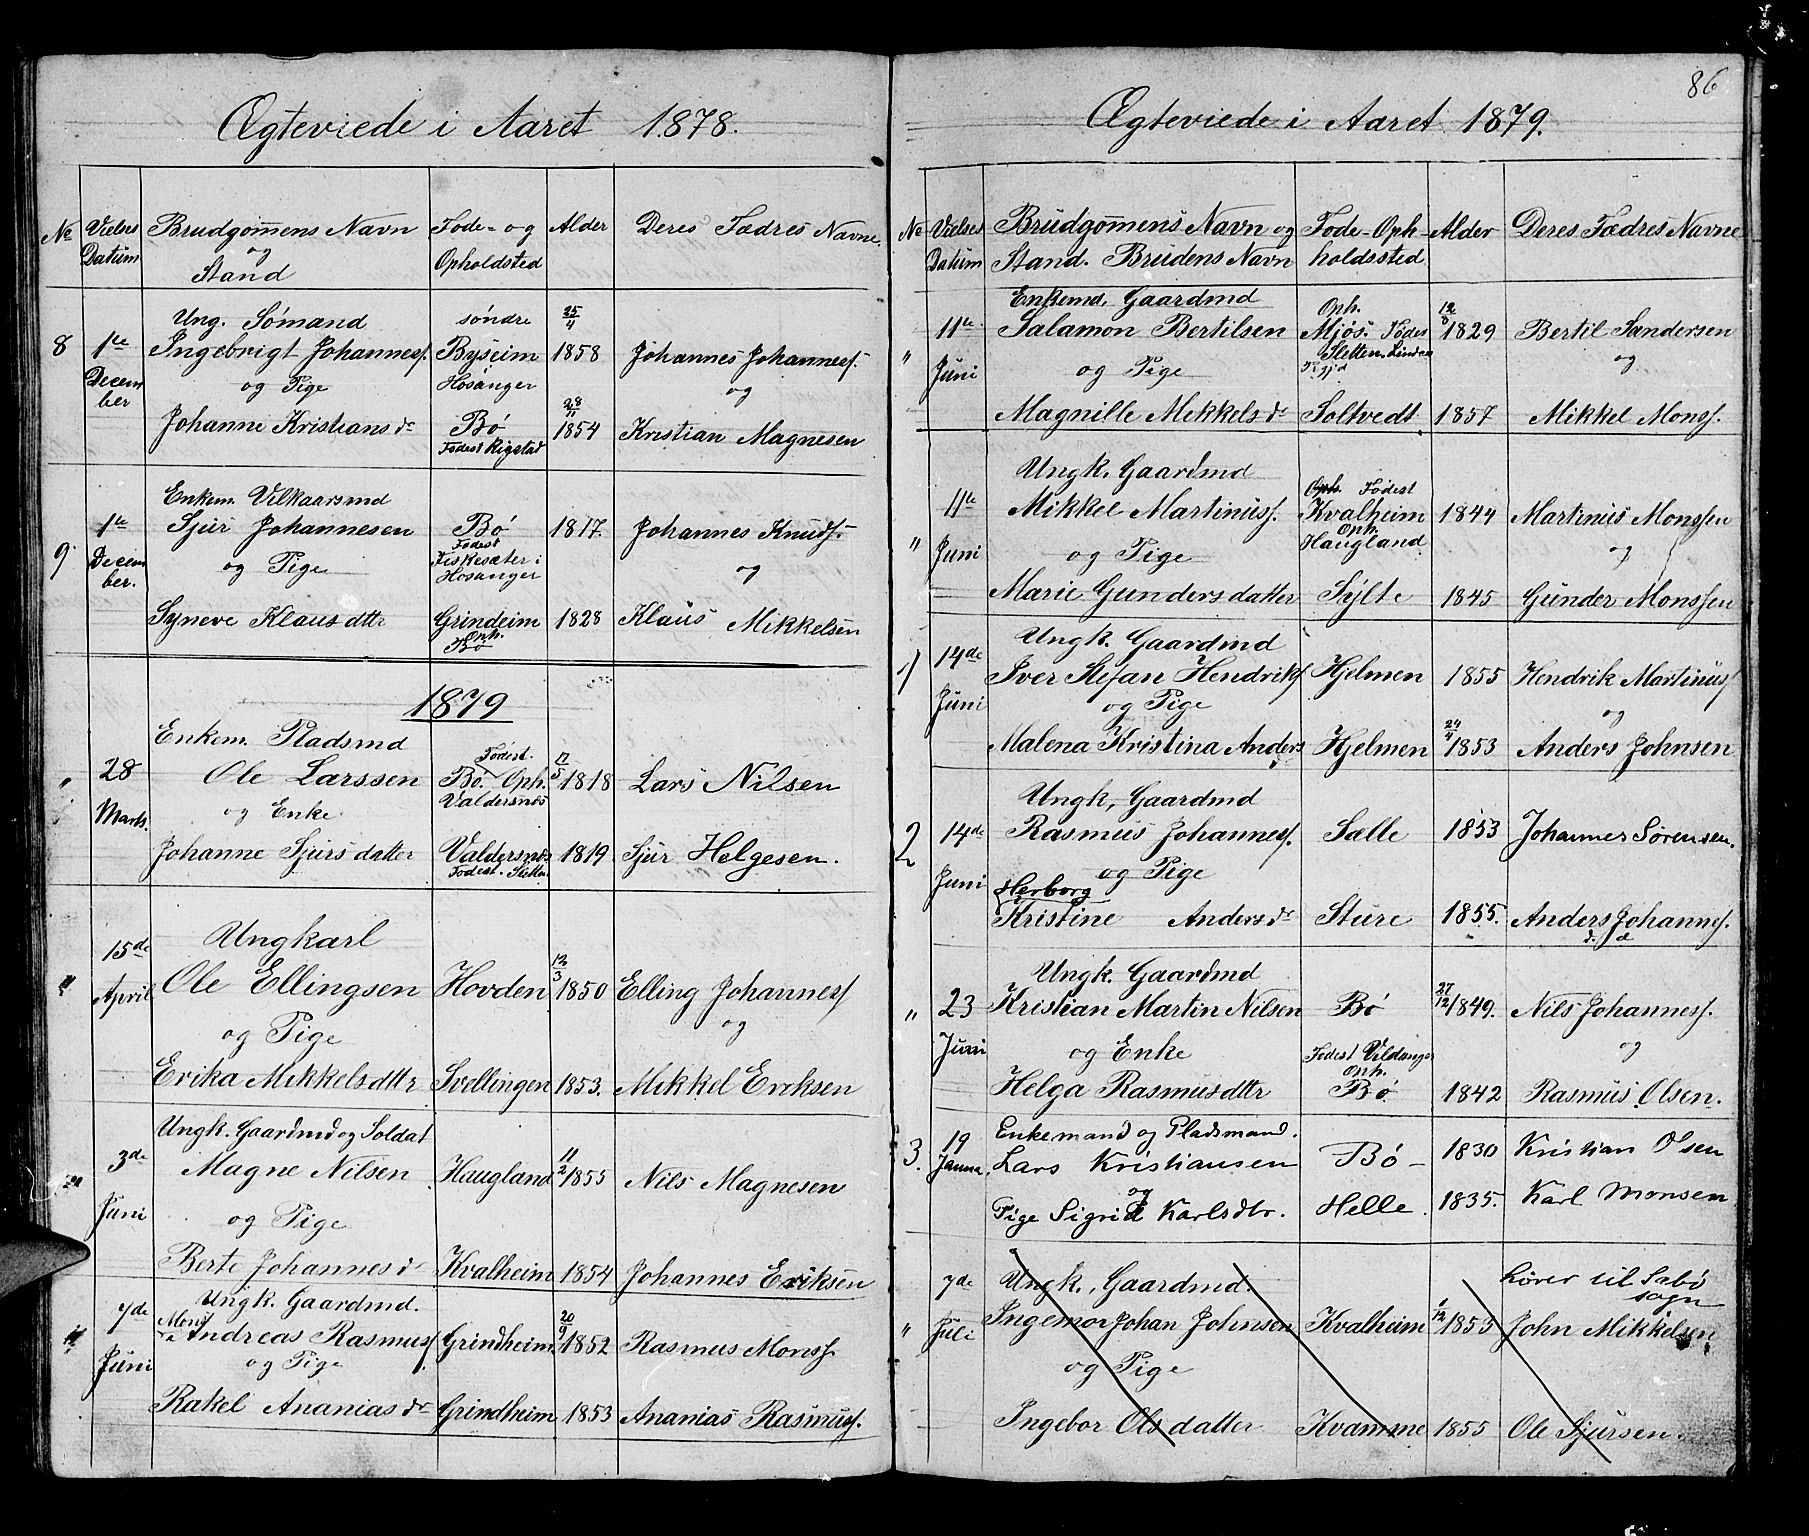 Ægteviede i Aaret 1878.
No Vielses Datum Brudgomens Navn og Stand Føde- og Opholdsted Alder Deres Fædres Navne
Ung. Sømand søndre 25/4
8 1te Ingebrigt Johannes. Byseim 1858 Johannes Johanness.
Decem ber og Pige Hosanger og
28/11
Johanne Kristians dr Bø 1854 Kristian Magnesen
Fødest Rigstad
Enkem. Vilkaarsmd
9. 1te Sjur Johannesen Bø 1817. Johannes Knuds.
Decem ber. og Pige Fødest Fiskesæter i Hosanger og
Syneve Klausdttr Grindeim 1828 Klaus Mikkelsen
Oph. Bø
1879
Enkem. Pladsmd
" 28 Ole Larssen Fødest. Bø. Oph. 17/5 1818 Lars Nilsen
Marts. og Enke Valdersnæs
Johanne Sjursdatter Valdersnæs 1819 Sjur Helgesen.
Fødest. Sletten
15de Ungkarl
" April Ole Ellingsen Hovden 12/3 1850 Elling Johannes
og Pige og
Erika Mikkelsdttr Svellingen 1853. Mikkel Eriksen
Ungk. Gaardmd og Soldat
" 3de Magne Nilsen Haugland 11/2 1855 Nils Magnesen
Juni og Pige
Berte Johannes dr Kvalheim 1854 Johannes Eriksen
7de Ungk. Gaardmd.
" Mons Andreas Rasmus Grindheim 20/9 1852 Rasmus Monss.
Juni og Pige
Rakel Ananias dr Grindheim 1853 Ananias Rasmuss.
86
Ægteviede i Aaret 1879.
No Vielses Datum Brudgomens Navn og Stand. Brudens Navn Føde-Oph- holdssted Alder Deres Fædres Navne
Enkemd, Gaardmd Oph. 12/8
" 11te Salamon Bertilsen Mjøs. Fødest 1829 Bertil Sandersen
Juni og Pige Sletten Lindaas og
Magnille Mekkels dr Soltvedt 1857 Mikkel Monss.
Ungk. Gaardmd Oph. Fødest
" 11te Mikkel Martinuss. Kvalheim 1844 Martinus Monssen
Juni og Pige Oph. Haugland og
Marie Gundersdatter Sylte 1845 Gunder Monssen
Ungk. Gaardmd
1 14de Iver Stefan Hendriks Hjelmen 1855 Hendrik Martinus
Juni og Pige og
Malena Kristina Anders Hjelmen 24/4 1853 Anders Johnsen
Ungk, Gaardmd
2 14de Rasmus Johanness. Sælle 1853 Johannes Sørensen.
Juni og Pige
Herborg
Kristine Anders dr Sture 1855. Anders Johanness.
Ungk. Gaardmd
" 23 Kristian Martin Nilsen Bø 27/12 1849. Nils Johanness.
Juni og Enke Fødest Vildanger og
Oph.
Helga Rasmusdttr Bø 1842 Rasmus Olsen.
3. 19 Enkemand og Pladsmand.
Janua. Lars Kristiansen Bø 1830 Kristian Olsen
og
Pige Sigrid Karlsdtr. Helle. 1835. Karl Monsen
7de Ungk, Gaardmd. hører til Sabø sogn
" Juli Ingemor Johan Johnsen Kvalheim 1/12 1853 John Mikkelsen
og Pige
Ingebor Olsdatter Kvamme 1855 Ole Sjursen.